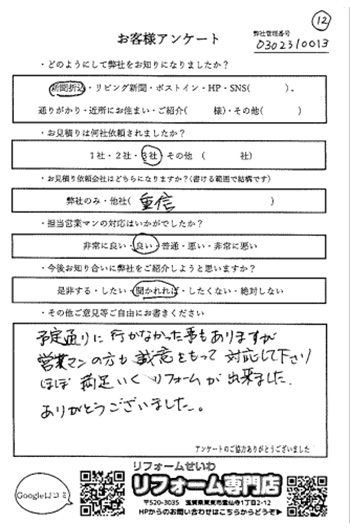 12
お客様アンケート
弊社管理番号
0302310013
・どのようにして弊社をお知りになりましたか?
新聞折込・リビング新聞・ポストイン・HP・SNS( )、
通りがかり・近所にお住まい・ご紹介( 様)・その他( )
・お見積りは何社依頼されましたか?
1社・2社・3社・その他 ( 社)
・お見積り依頼会社はどちらになりますか?(書ける範囲で結構です)
弊社のみ・他社( 重信 )
・担当営業マンの対応はいかがでしたか?
非常に良い・良い・普通・悪い・非常に悪い
・今後お知り合いに弊社をご紹介しようと思いますか?
是非する・したい・聞かれれば・したくない・絶対しない
・その他ご意見等ご自由にお書きください
予定通りに行かなかった事もありますが
営業マンの方も誠意をもって対応して下さり
ほぼ満足いくリフォームが出来ました.
ありがとうございました。
アンケートのご協力ありがとうございました
Google口コミ
リフォームせいわ
リフォーム専門店
〒520-3035 滋賀県栗東市霊仙寺1丁目2-12
HPからのお問い合わせはこちらからどうぞ▶